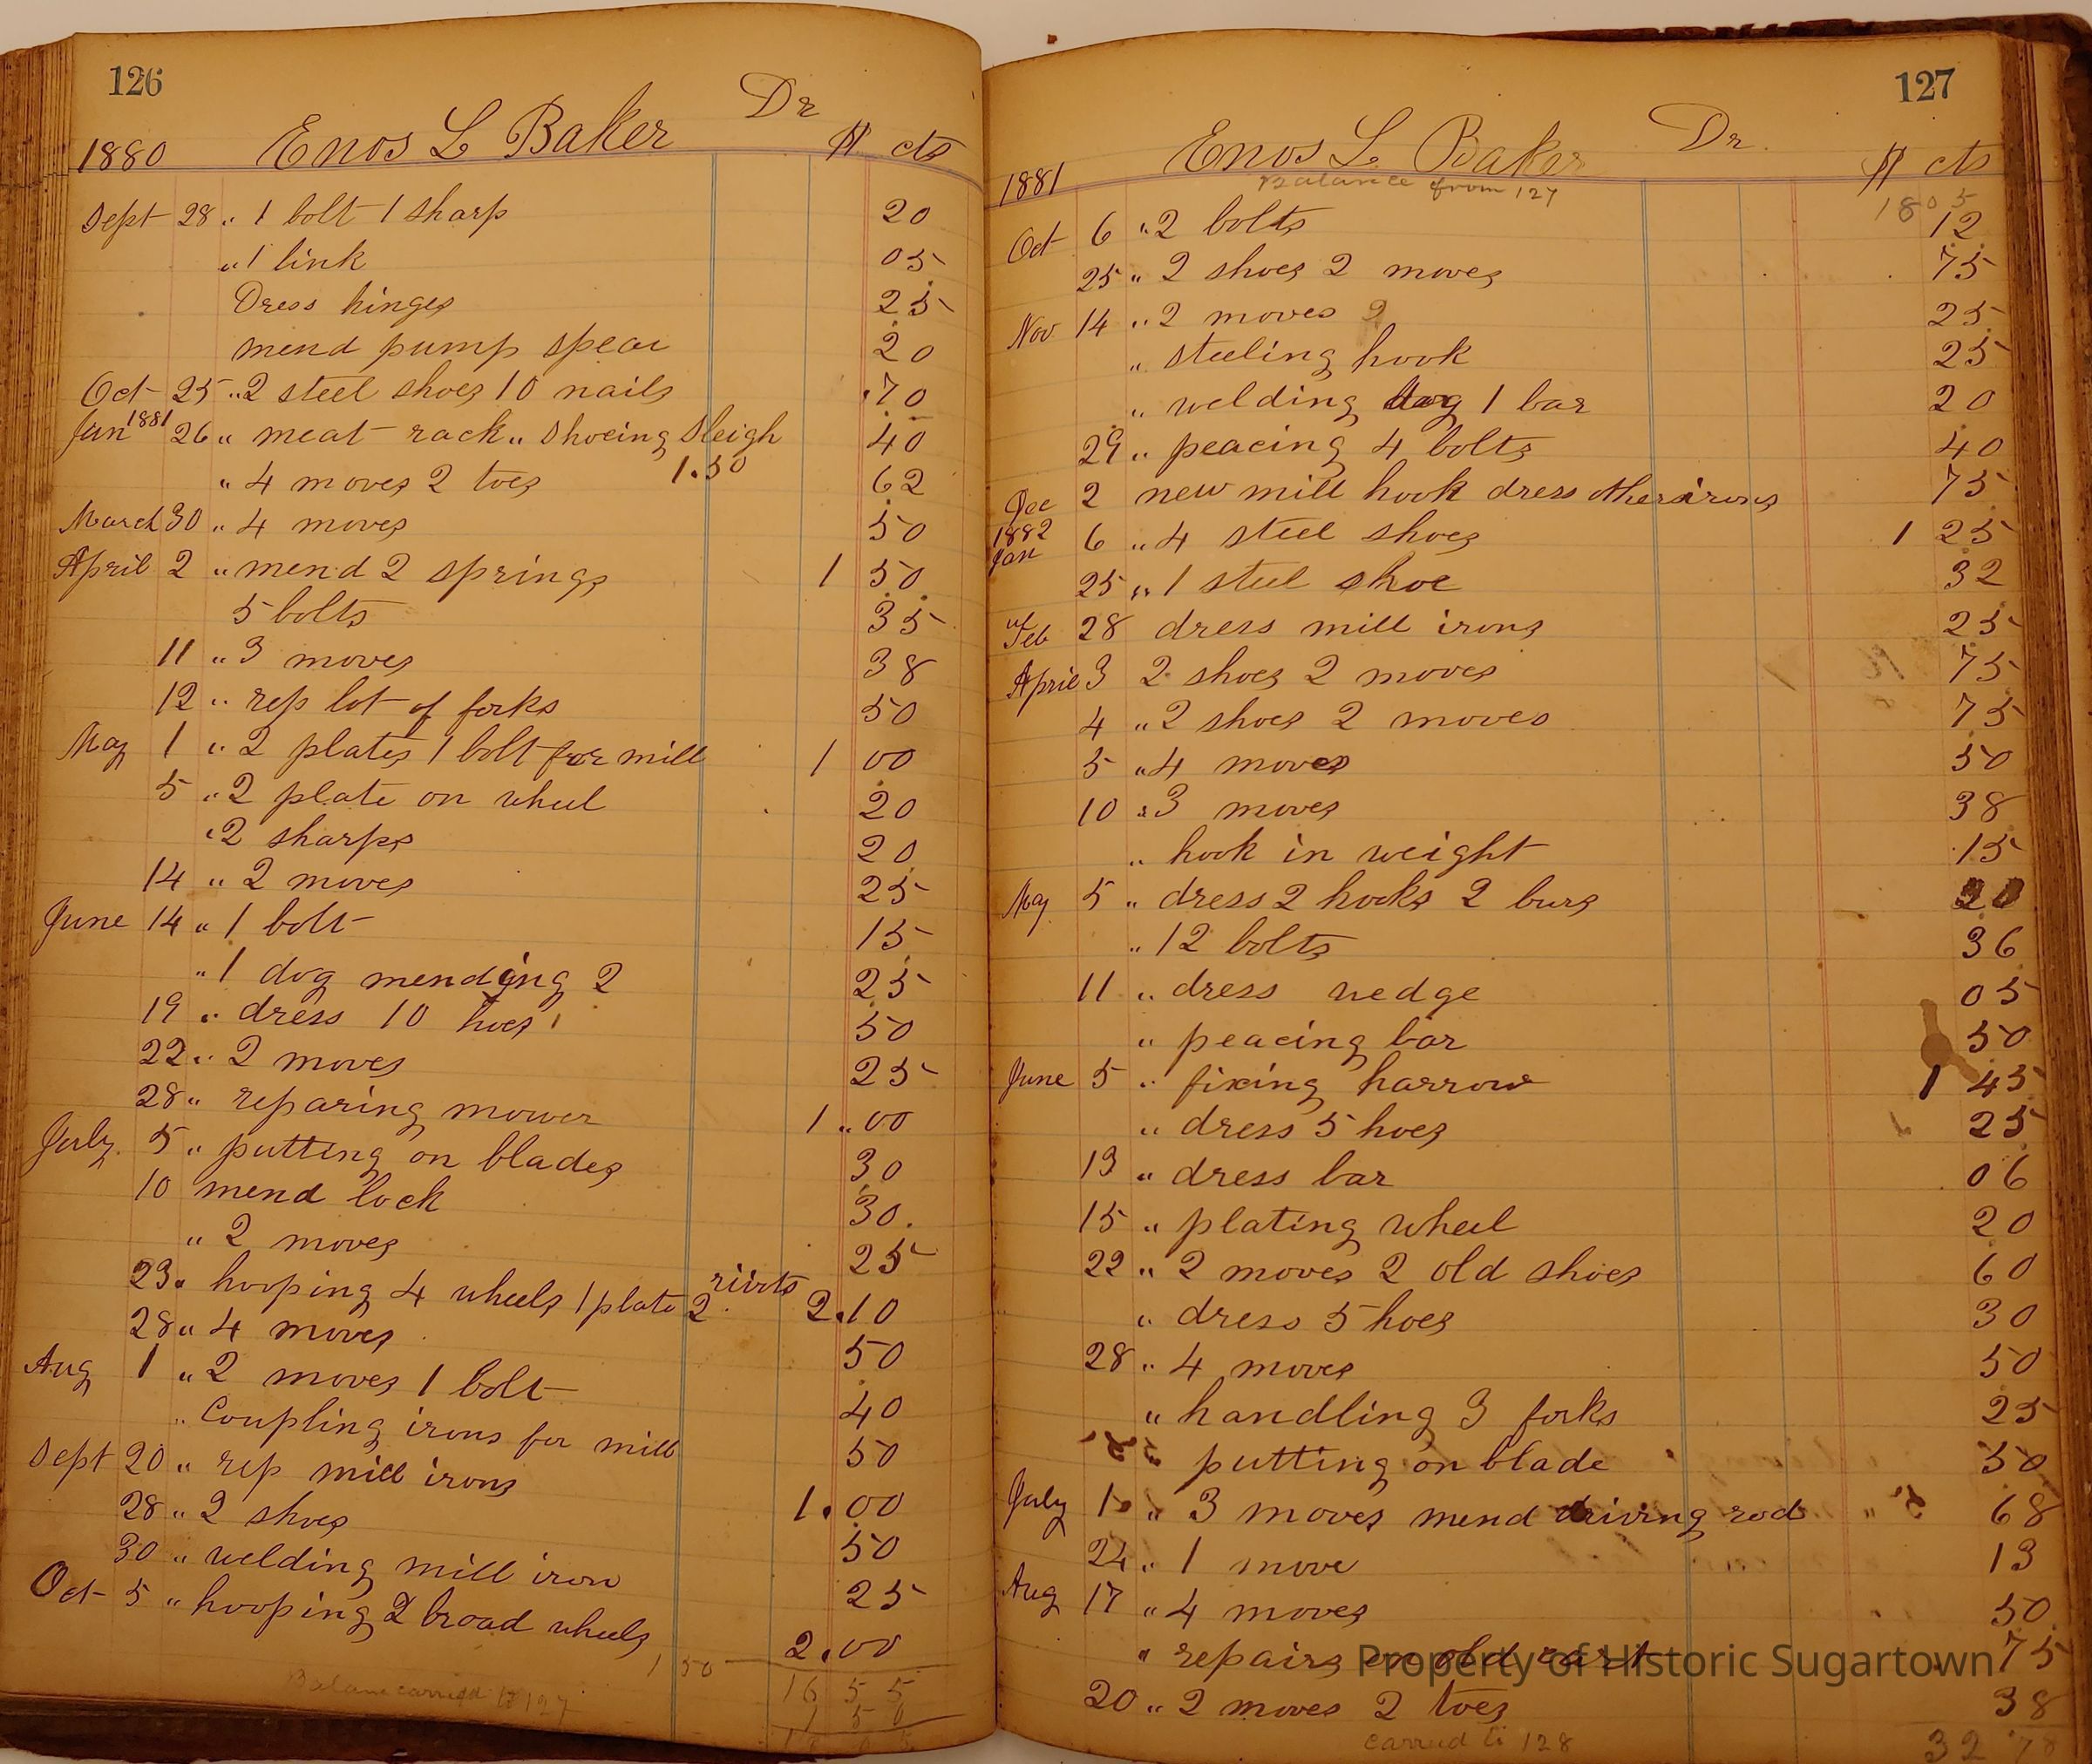 126
Dr
1880 Enos L Baker $ cts
Sept 28 " 1 bolt 1 sharp 20
" 1 link 05
Dress hinges 25
mend pump spear 20
Oct 25 " 2 steel shoes 10 nails .70
Jan 1881 26 " meat rack " shoeing sleigh 40
1.50
" 4 moves 2 toes 62
March 30 " 4 moves 50
April 2 " mend 2 springs 1 50
5 bolts 35
11 " 3 moves 38
12 " rep lot of forks 50
May 1 " 2 plates 1 bolt for mill 1 00
5 " 2 plate on wheel 20
" 2 sharps 20
14 " 2 moves 25
June 14 " 1 bolt 15
" 1 dog mending 2 25
19 " dress 10 hoes 50
22 " 2 moves 25
28 " reparing mower 1 " 00
July 5 " putting on blades 30
10 mend lock 30.
" 2 moves 25
23 " hooping 4 wheels 1 plate 2 rivits 2.10
28 " 4 moves 50
Aug 1 " 2 moves 1 bolt 40
" Coupling irons for mill 50
Sept 20 " rep mill irons 1.00
28 " 2 shoes 50
30 " welding mill iron 25
Oct 5 " hooping 2 broad wheels 2.00
1 50
16 55
Balance carried to 127
1 50
127
Dr.
1881 Enos L. Baker $ cts
Balance from 127 1805
Oct 6 " 2 bolts 12
25 " 2 shoes 2 moves 75
Nov 14 " 2 moves 2 25
" steeling hook 25
" welding dog 1 bar 20
29 " peacing 4 bolts 40
Dec 2 new mill hook dress other irons 75
1882
Jan 6 " 4 steel shoes 1 25
25 " 1 steel shoe 32
Feb 28 dress mill irons 25
April 3 2 shoes 2 moves 75
4 " 2 shoes 2 moves 75
5 " 4 moves 50
10 " 3 moves 38
" hook in weight 15
May 5 " dress 2 hooks 2 burs
" 12 bolts 36
11 " dress wedge 05
" peacing bar 50
June 5 " fixing harrow 1 45
" dress 5 hoes 25
13 " dress bar 06
15 " plating wheel 20
22 " 2 moves 2 old shoes 60
" dress 5 hoes 30
28 " 4 moves 50
" handling 3 forks 25
putting on blade 50
July 1 " 3 moves mend driving rod 68
24 " 1 move 13
Aug 17 " 4 moves 50
" repairs on old cart 75
Property of Historic Sugartown
20 " 2 moves 2 toes 38
carried to 128 32 78